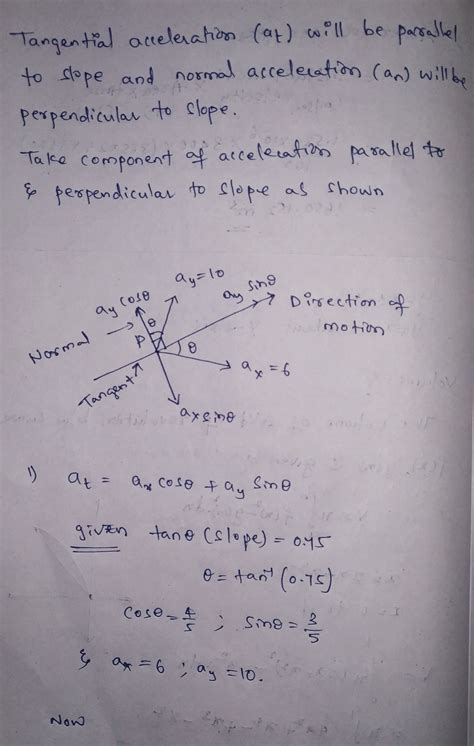 Tangential acceleration (at) will be parallel
to slope and normal acceleration (an) will be
perpendicular to slope.
Take component of acceleration parallel to
& perpendicular to slope as shown
ay=10
ay cosθ
ay sinθ
θ
Direction of
motion
Normal
P
θ
ax=6
Tangent
ax sinθ
1) at = ax cosθ + ay sinθ
given tanθ (slope) = 0.75
θ = tan⁻¹ (0.75)
cosθ = 4/5 ; sinθ = 3/5
& ax = 6 ; ay = 10.
Now